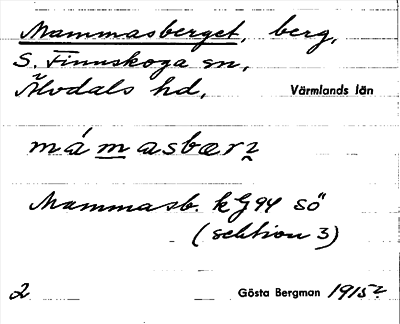 Mammasberget, berg,
S. Finnskoga sn,
Älvdals hd, Värmlands län
mámasbærʒ
Mammasb. kG94 SÖ
(sektion 3)
2 Gösta Bergman 1915?